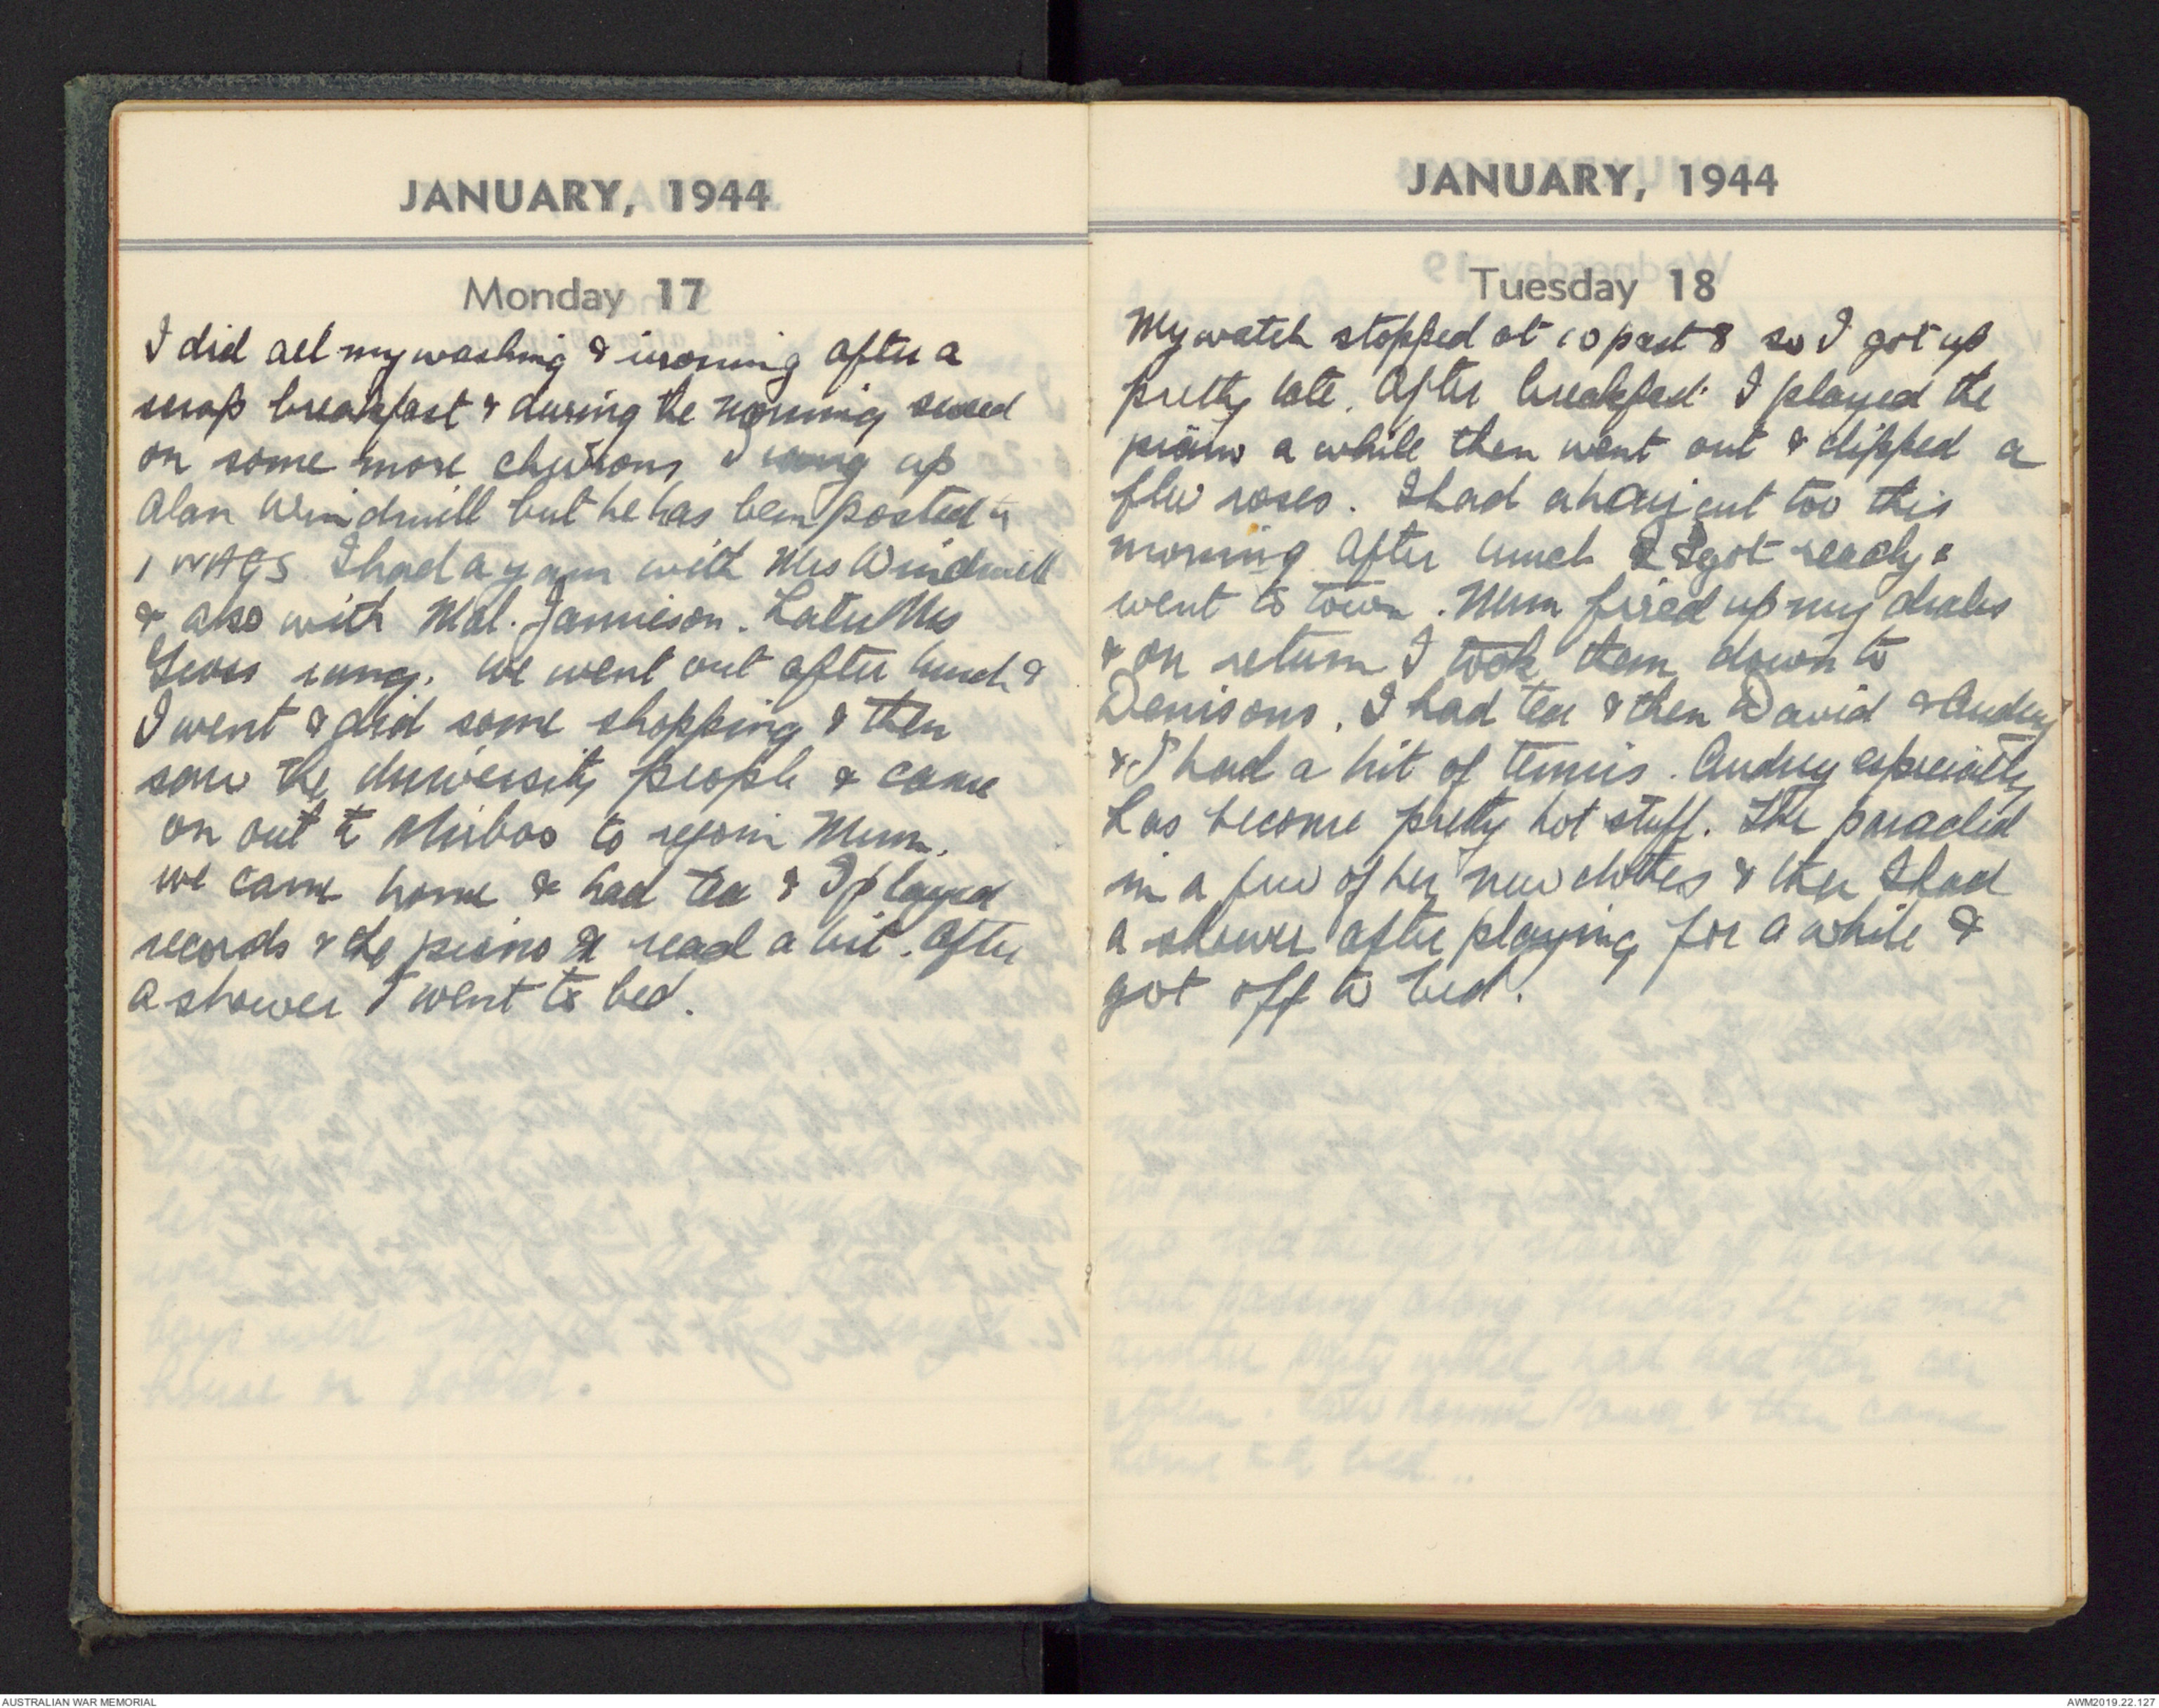 JANUARY, 1944
Monday 17
I did all my washing & ironing after a
scrap breakfast & during the morning sewed
on some more chevrons I rang up
Alan Windmill but he has been posted to
1 WAGS I had a yarn with Mrs Windmill
& also with Mal. Jamieson. Later Mrs
rang. We went out after lunch &
I went & did some shopping & then
saw the University people & came
on out to to rejoin Mum.
We came home & had tea & I played
records & the piano & read a bit. After
a shower I went to bed.
JANUARY, 1944
Tuesday 18
My watch stopped at 10 past 8 so I got up
pretty late. After breakfast I played the
piano a while then went out & clipped a
few roses. I had a hair cut too this
morning After lunch I got ready &
went to town. Mum fixed up my
& on return I took them down to
Denisons. I had tea & then David & Audrey
& I had a hit of tennis. Audrey especially
has become pretty hot stuff. She paraded
in a few of her new clothes & then I had
a shower after playing for a while &
got off to bed.
AUSTRALIAN WAR MEMORIAL
AWM2019.22.127